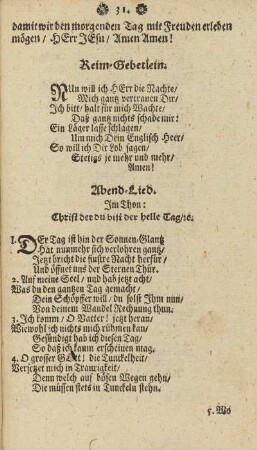 31.
damit wir den morgenden Tag mit Freuden erleben
mögen / HErr JEsu / Amen Amen!
Reim-Gebetlein.
NUn will ich HErr die Nachte /
Mich gantz vertrauen Dir /
Ich bitt / halt für mich Wachte /
Daß gantz nichts schade mir:
Ein Läger lasse schlagen /
Um mich Dein Englisch Heer /
So will ich Dir Lob sagen /
Stetigs je mehr und mehr /
Amen!
Abend-Lied.
Im Thon:
Christ der du bist der helle Tag / ꝛc.
1. DEr Tag ist hin der Sonnen-Glantz
Hat nunmehr sich verlohren gantz /
Jetzt bricht die finstre Nacht herfür /
Und öffnet uns der Sternen Thür.
2. Auf meine Seel / und hab jetzt acht /
Was du den gantzen Tag gemacht /
Dein Schöpffer will / du solst Ihm nun /
Von deinem Wandel Rechnung thun.
3. Ich komm / O Vatter! jetzt heran /
Wiewohl ich nichts mich rühmen kan /
Gesündigt hab ich diesen Tag /
So daß ich kaum erscheinen mag.
4. O grosser GOtt! die Tunckelheit /
Versetzet mich in Traurigkeit /
Denn welch auf bösen Wegen gehn /
Die müssen stets in Tunckeln stehn.